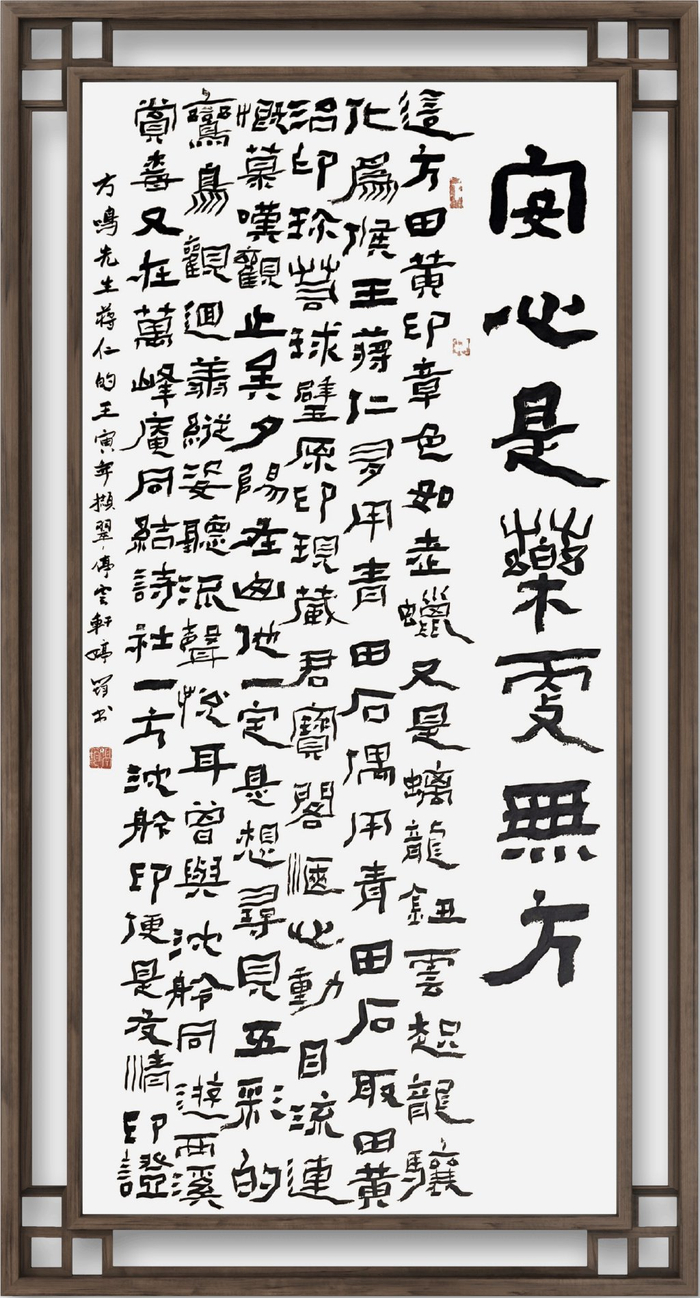 安心是藥更無方
這方田黃印章色如老蠟又是螭龍鈕雲起龍驤
化為侯王蔣仁多用青田石偶用青田石取田黃
治印珍若球璧原印現藏君寶閣愜心動目流連
慨慕嘆觀止矣夕陽在山他一定是想尋見五彩的
鸞鳥觀迴翥縱姿聽流聲悅耳曾與沈舲同遊西溪
賞梅又在萬峰庵同結詩社一方沈舲印便是友情印證
方鳴先生蔣仁的壬寅年擷翠停雲軒婷書